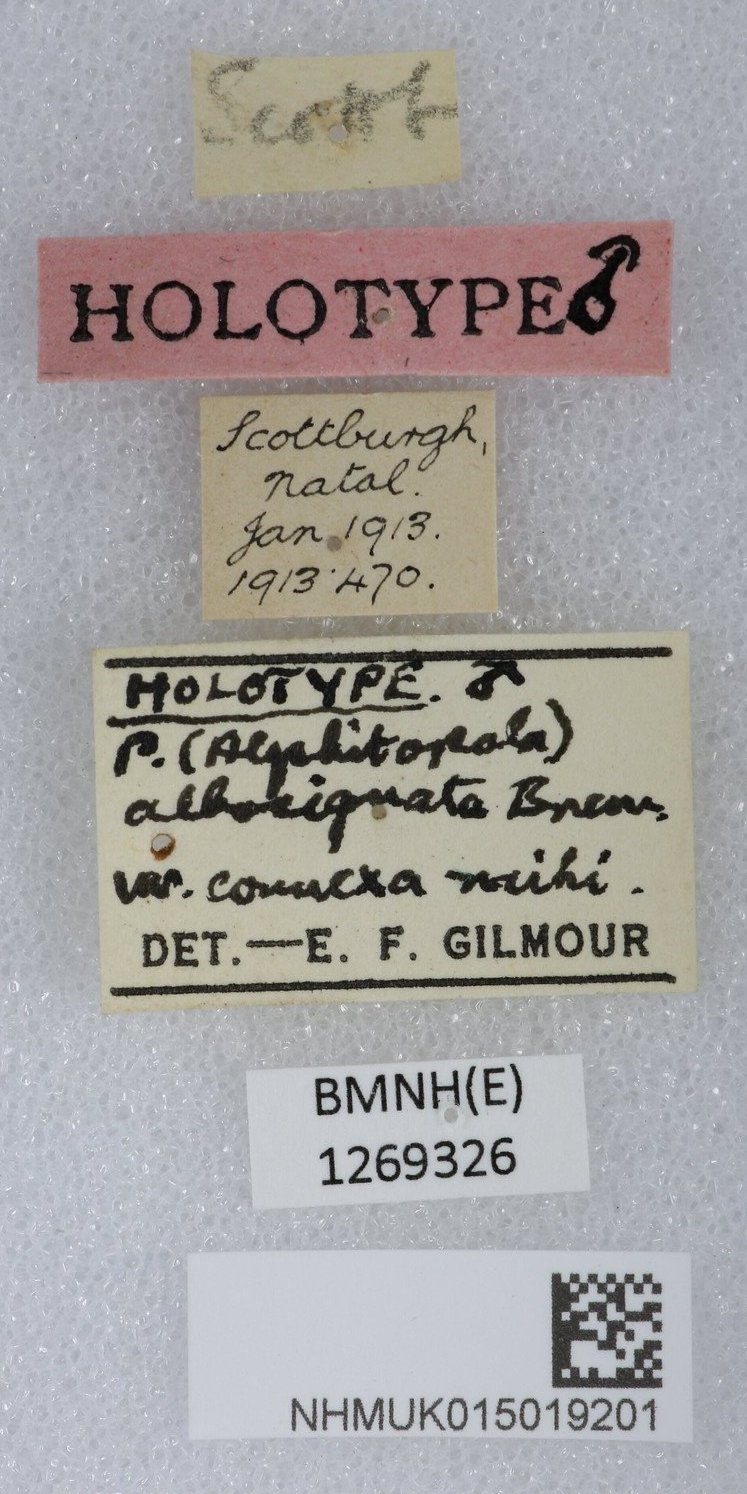 Scottb
HOLOTYPE ♂
Scottburgh,
Natal.
Jan 1913.
1913·470.
HOLOTYPE. ♂
P. (Alphitopola)
albosignata Breun.
var. connexa mihi.
DET.—E. F. GILMOUR
BMNH(E)
1269326
NHMUK015019201